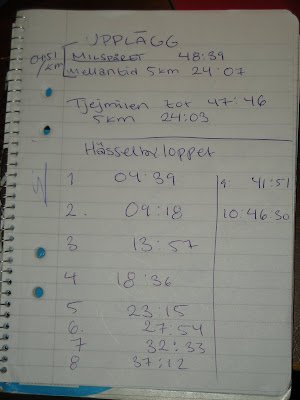 UPPLÄGG
04:51/km
Milspåret 48:39
Mellantid 5km 24:07
Tjejmilen tor 47:46
5km 24:03
Hässelbyloppet
1 04:39
2. 09:18
3 13:57
4 18:36
5 23:15
6. 27:54
7 32:33
8 37:12
9. 41:51
10:46.30